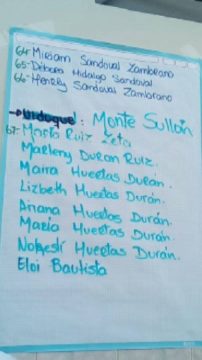 64- Miriam Sandoval Zambrano
65- Debora Hidalgo Sandoval
66- Henrly Sandoval Zambrano
Uiduque: Monte Sullón
67- Marta Ruiz Zeta
Marleny Duran Ruiz.
Maira Huertas Durán.
Lizbeth Huertas Durán.
Ariana Huertas Durán.
María Huertas Durán.
Huertas Durán.
Eloi Bautista